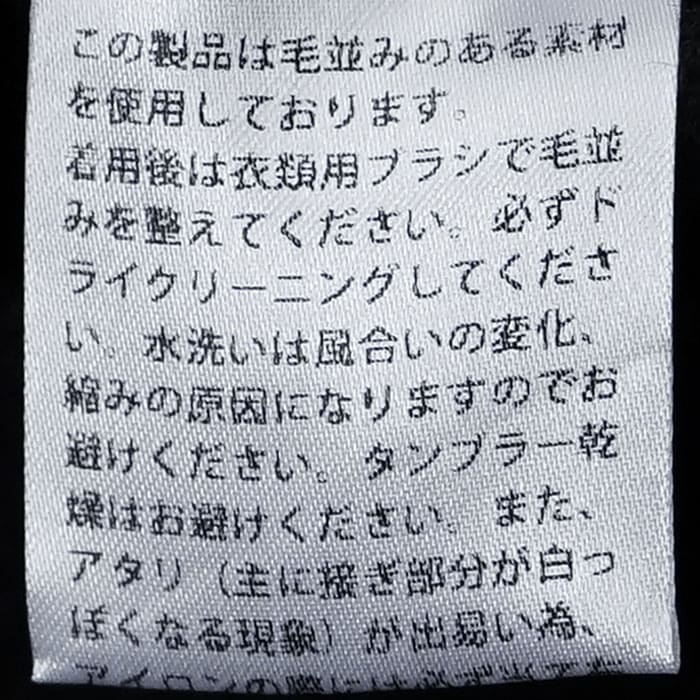 この製品は毛並みのある素材
を使用しております。
着用後は衣類用ブラシで毛並
みを整えてください。必ずド
ライクリーニングしてくださ
い。水洗いは風合いの変化、
縮みの原因になりますのでお
避けください。タンブラー乾
燥はお避けください。また、
アタリ（主に接ぎ部分が白っ
ぽくなる現象）が出易い為、
アイロンの際には必ず